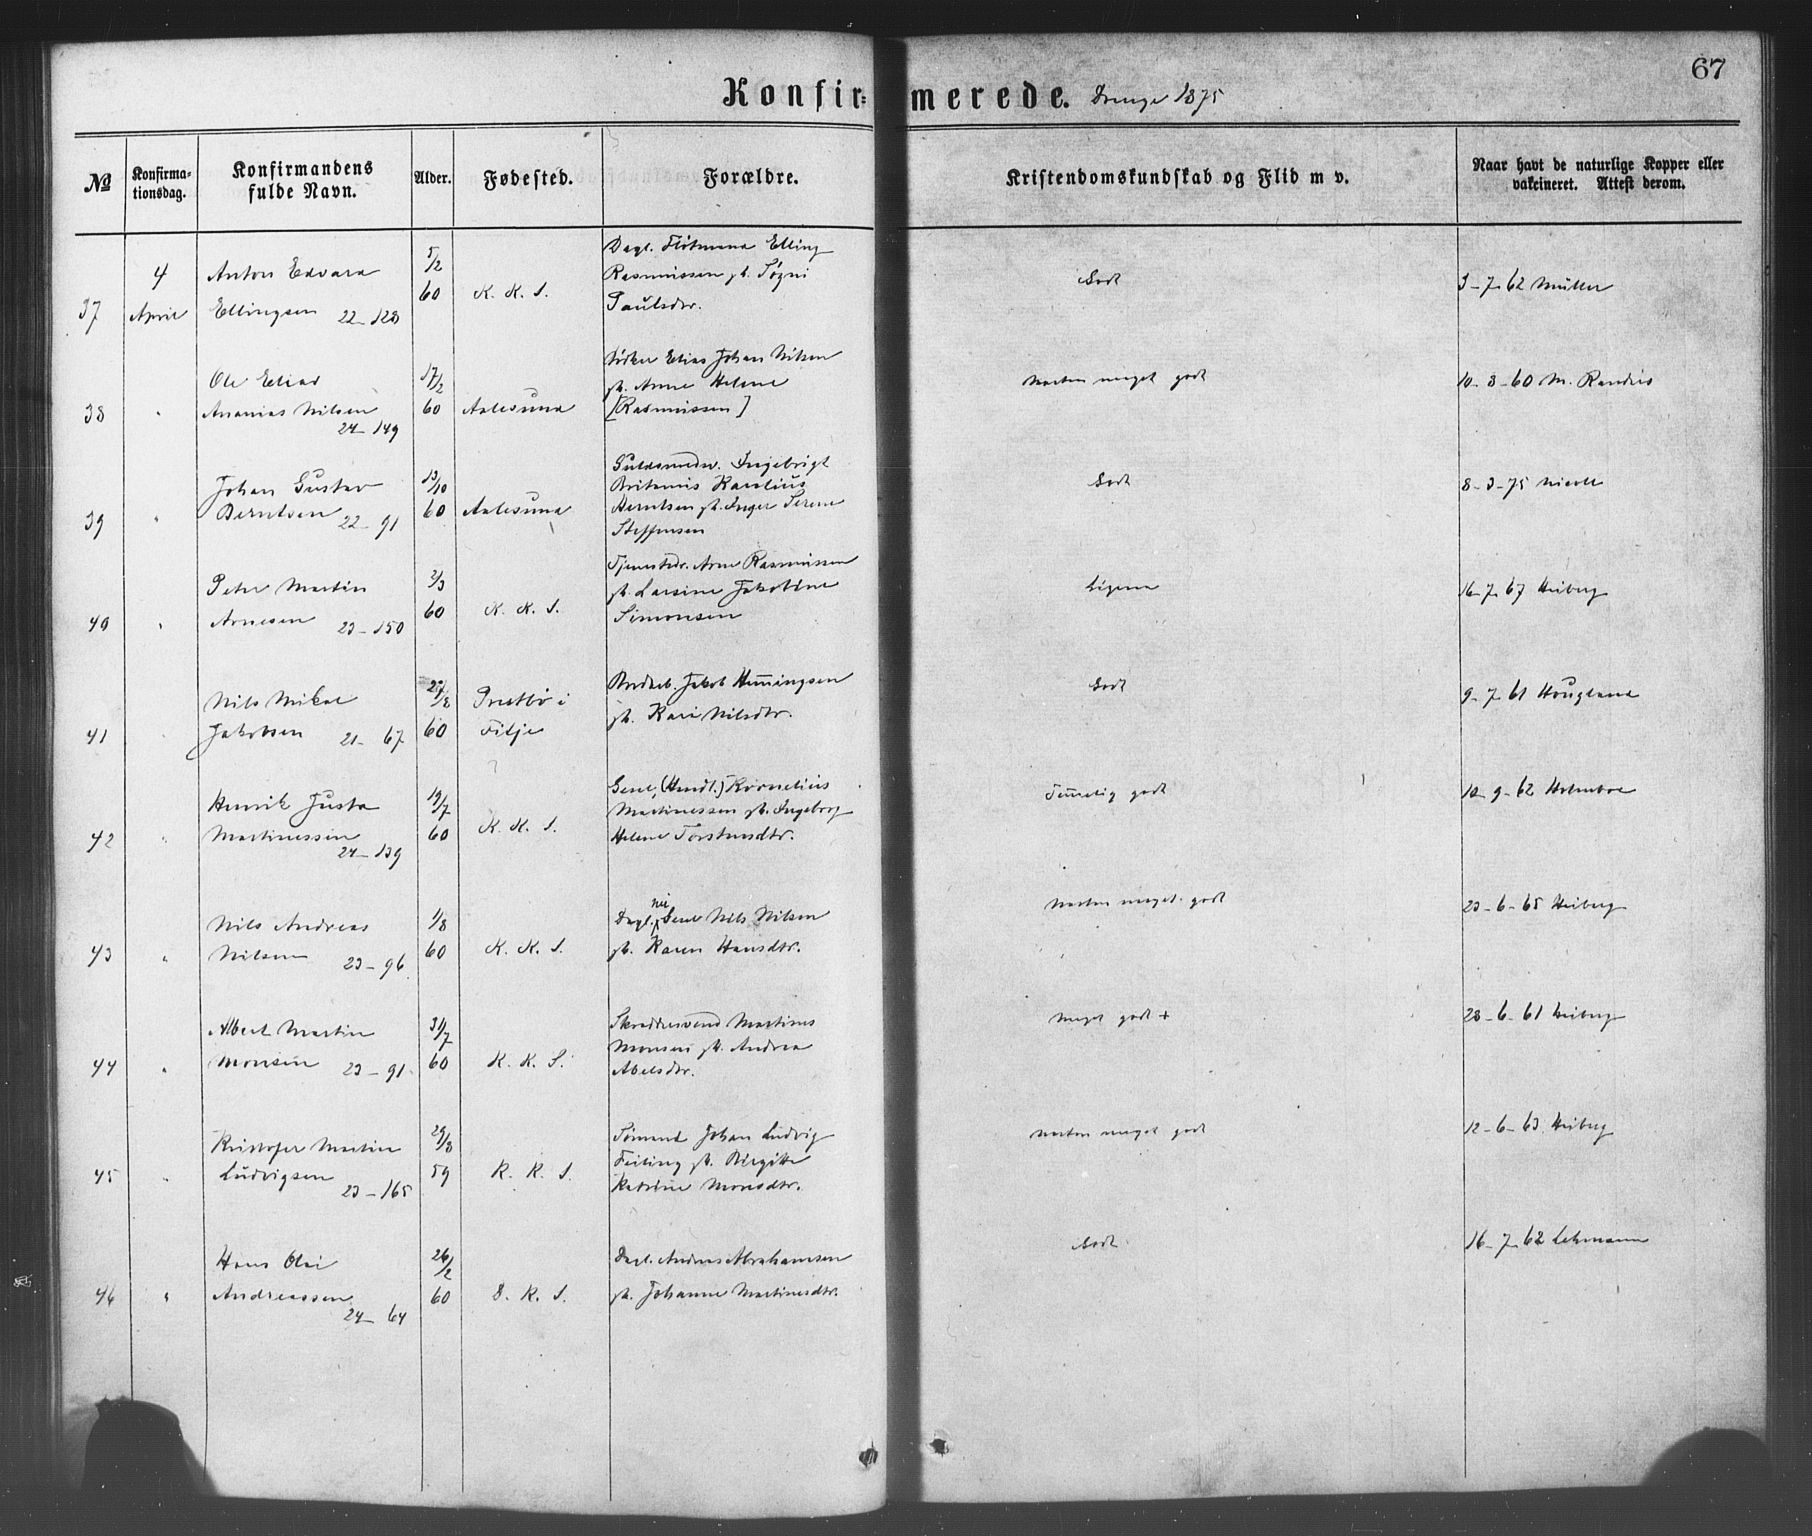 67
Konfirmerede. Drenge 1875
№
Konfirma-
tionsdag.
Konfirmandens
fulde Navn.
Alder.
Fødested.
Forældre.
Kristendomskundskab og Flid m v.
Naar havt de naturlige Kopper eller
vakcineret. Attest derom.
37
4
April
Anton Edvard
Ellingsen 22-128
5/2
60
K. K. S.
Dagl. Flötmand Elling
Rasmussen h.
Paulsdtr.
Godt
3-7-62 Müller
38
"
Ole Elias
Ananias Nilsen
24-149
17/2
60
Aalesund
Elias Johan Nilsen
h. Anne Helene
[Rasmussen]
Næsten meget godt
10-8-60 M. Randers
39
"
Johan Gustav
Berntsen 22-91
13/10
60
Aalesund
Guldsmedsv. Ingebrigt
Karolius
Berntsen h. Inger Serene
Steffensen
Godt
8-3-75 Nicoll
40
"
Peter Martin
Arnesen 23-150
2/3
60
K. K. S.
Arne Rasmussen
h. Larsine Jakobine
Simonsen
Ligesaa
16-7-67 Heiberg
41
Nils Mikal
Jakobsen 21-67
27/2
60
Prestbö i
Fitje
Jakob Hemingsen
h. Kari Nilsdtr.
Godt
9-7-61 Hougland
42
Henrik Justa
Martinessen
24-139
19/7
60
K. K. S.
(Handl.) Kornelius
Martinessen h. Ingeborg
Helene Torstensdtr.
Temmelig godt
10-9-62 Holmboe
43
"
Nils Andreas
Nilsen 23-96
1/8
60
K. K. S.
Dagl. Nils Nilsen
h. Karen Hansdtr.
Næsten meget godt
23-6-65 Heiberg
44
"
Albert Martin
Monsen 23-91
31/7
60
K. K. S.
Skræddersvend Martines
Monsen h. Andrea
Abelsdtr.
Meget godt +
28-6-61 Heiberg
45
"
Kristofer Martin
Ludvigsen
23-165
29/8
59
K. K. S.
Sömand Johan Ludvig
h. Birgitte
Katrine Monsdtr.
Næsten meget godt
12-6-63 Heiberg
46
"
Hans Olai
Andreassen
24-64
26/2
60
D. K. S.
Dagl. Andreas Abrahamsen
h. Johanne Martinesdtr.
Godt
16-7-62 Lehmann